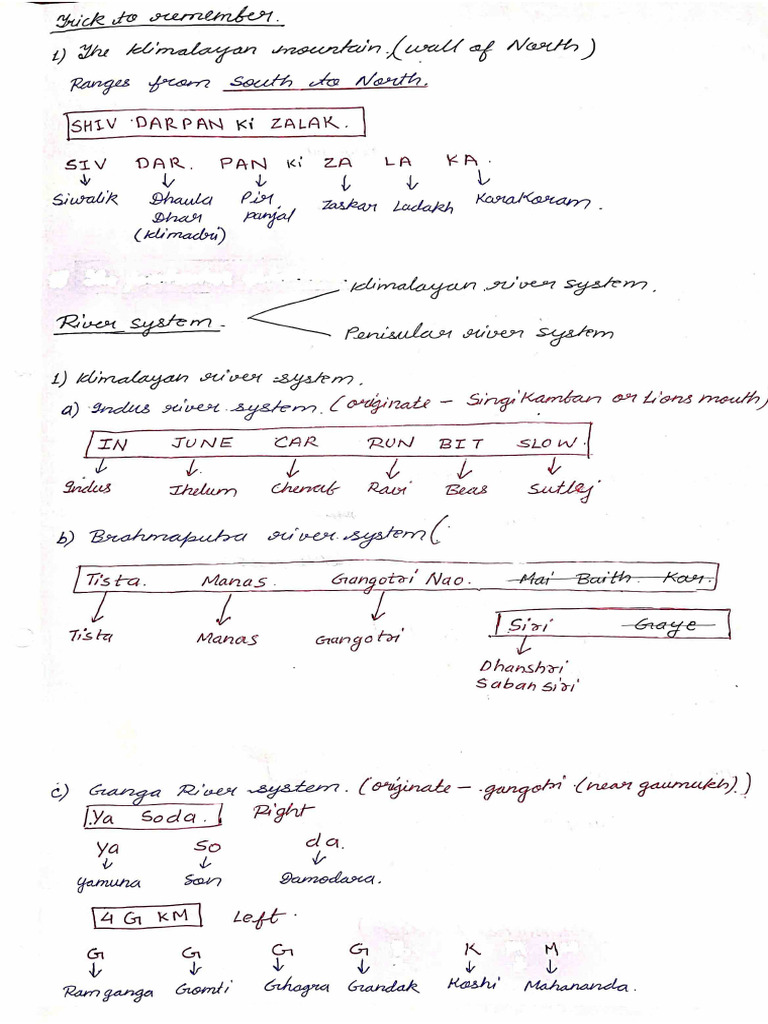 Trick to remember.
1) The Himalayan mountain. (wall of North)
Ranges from South to North.
SHIV DARPAN Ki ZALAK.
SIV DAR. PAN Ki ZA LA KA.
Siwalik Dhaula Dhar (Himadri) Pir panjal Zaskar Ladakh KaraKoram.
Himalayan river system.
River system.
Penisular river system
1) Himalayan river system.
a) Indus river system. (originate - Singi Kamban or Lions mouth)
IN JUNE CAR RUN BIT SLOW.
Indus Jhelum Chenab Ravi Beas Sutlej
b) Brahmaputra river system (
Tista. Manas. Gangotri Nao. Mai Baith Kar.
Tista Manas Gangotri
Siri Graye
Dhanshri
Saban siri
c) Ganga River system. (originate - gangotri (near gaumukh).)
Ya Soda. Right
Ya So da.
Yamuna Son Damodara.
4 G KM Left.
G G G G K M
Ramganga Gomti Ghagra Gandak Koshi Mahananda.